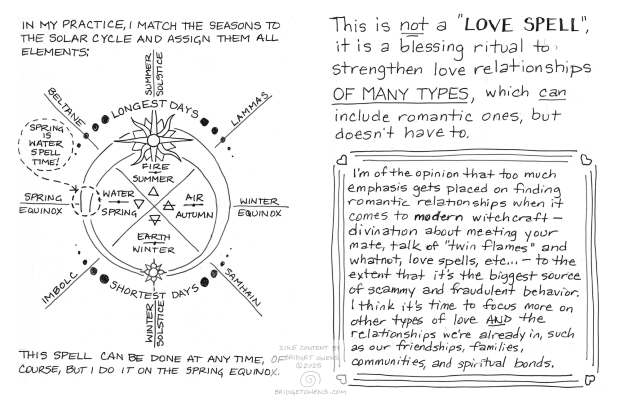 IN MY PRACTICE, I MATCH THE SEASONS TO
THE SOLAR CYCLE AND ASSIGN THEM ALL
ELEMENTS:
SUMMER
SOLSTICE
BELTANE
LONGEST DAYS
LAMMAS
SPRING
IS
WATER
SPELL
TIME!
FIRE
SUMMER
SPRING
EQUINOX
WATER
SPRING
AIR
AUTUMN
WINTER
EQUINOX
EARTH
WINTER
IMBOLC
SHORTEST DAYS
SAMHAIN
WINTER
SOLSTICE
THIS SPELL CAN BE DONE AT ANY TIME, OF
COURSE, BUT I DO IT ON THE SPRING EQUINOX.
This is not a "LOVE SPELL",
it is a blessing ritual to
strengthen love relationships
OF MANY TYPES, which can
include romantic ones, but
doesn't have to.
I'm of the opinion that too much
emphasis gets placed on finding
romantic relationships when it
comes to modern witchcraft –
divination about meeting your
mate, talk of "twin flames" and
whatnot, love spells, etc... – to the
extent that it's the biggest source
of scammy and fraudulent behavior.
I think it's time to focus more on
other types of love AND the
relationships we're already in, such
as our friendships, families,
communities, and spiritual bonds.
ZINE CONTENT BY
BRIDGET OWENS
©2025
BRIDGETOWENS.COM